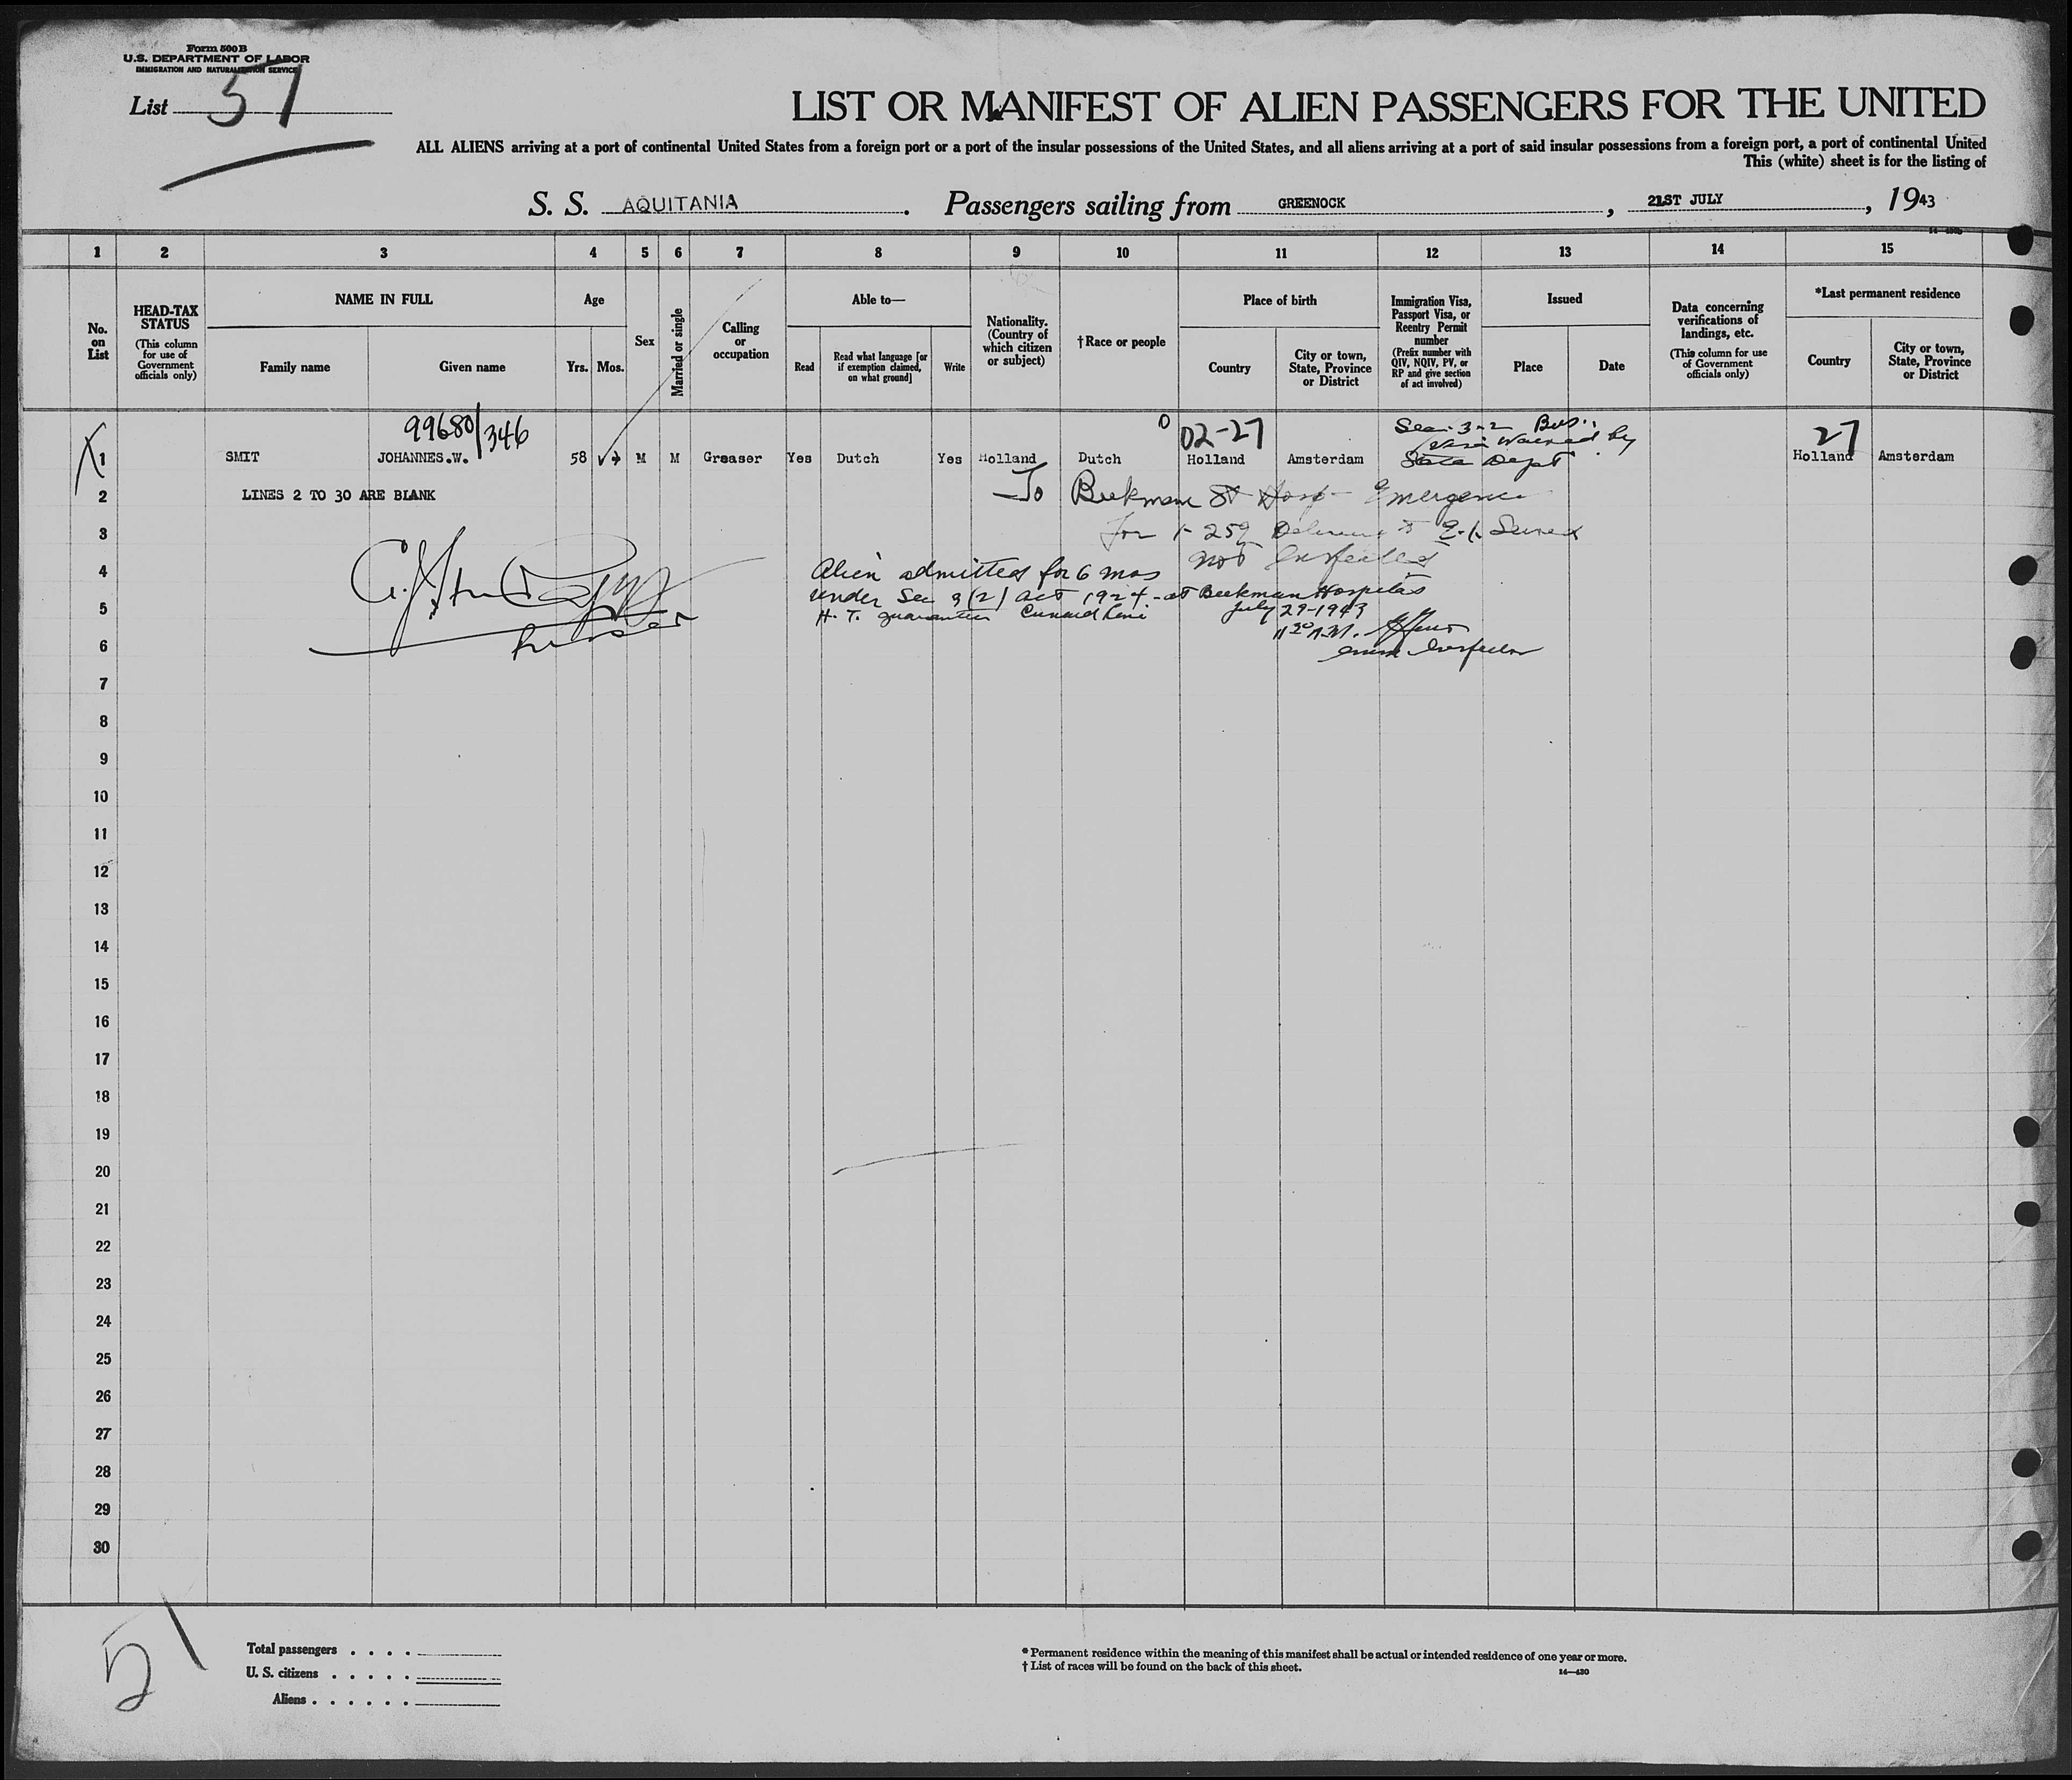 Form 500B
U.S. DEPARTMENT OF LABOR
IMMIGRATION AND NATURALIZATION SERVICE
List 51
LIST OR MANIFEST OF ALIEN PASSENGERS FOR THE UNITED
ALL ALIENS arriving at a port of continental United States from a foreign port or a port of the insular possessions of the United States, and all aliens arriving at a port of said insular possessions from a foreign port, a port of continental United
This (white) sheet is for the listing of
S. S. AQUITANIA. Passengers sailing from GREENOCK, 21ST JULY, 1943
1 2 3 4 5 6 7 8 9 10 11 12 13 14 15
No. on List
HEAD-TAX STATUS
(This column for use of Government officials only)
NAME IN FULL
Family name Given name
Age
Yrs. Mos.
Sex
Married or single
Calling or occupation
Able to—
Read
Read what language [or if exemption claimed, on what ground]
Write
Nationality. (Country of which citizen or subject)
†Race or people
Place of birth
Country
City or town, State, Province or District
Immigration Visa, Passport Visa, or Reentry Permit number
(Prefix number with QIV, NQIV, PV, or RP and give section of act involved)
Issued
Place Date
Data concerning verifications of landings, etc.
(This column for use of Government officials only)
*Last permanent residence
Country
City or town, State, Province or District
99680/346 02-27 Sec. 3-2 Bus. 27
Visa waived by
1 SMIT JOHANNES.W. 58 M M Greaser Yes Dutch Yes Holland Dutch Holland Amsterdam State Dept Holland Amsterdam
2 LINES 2 TO 30 ARE BLANK To Beekman St Hosp Emergence
3 for 1-259 E.I.
4 Alien admitted for 6 mos not Inspected
5 under Sec 3(2) Act 1924 - at Beekman Hospital
H. T. guarantee Cunard Line July 29-1943
Purser
11 30 A.M.
6 Imm Inspector
7
8
9
10
11
12
13
14
15
16
17
18
19
20
21
22
23
24
25
26
27
28
29
30
51
Total passengers . . . .
U. S. citizens . . . . .
Aliens . . . . . .
* Permanent residence within the meaning of this manifest shall be actual or intended residence of one year or more.
† List of races will be found on the back of this sheet.
14—430